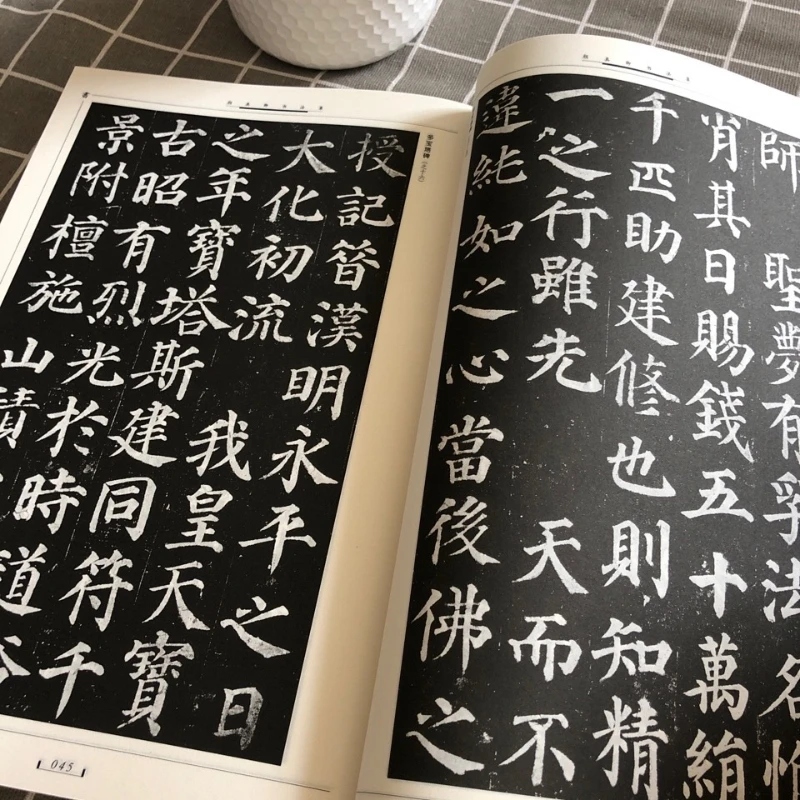 師 聖夢有孚法名惟
肖其日賜錢五十萬絹
千匹助建修也則知精
一之行雖先 天而不
違純如之心當後佛之
多宝塔碑
授記昔漢明永平之日
大化初流 我皇天寶
之年寶塔斯建同符千
古昭有烈光於時道
景附檀施山積
045